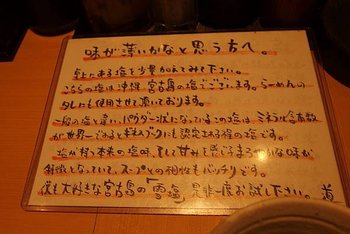 味が薄いかなと思う方へ。
卓上にある塩を少量加えてみて下さい。
こちらの塩は沖縄 宮古島の塩でございます。らーめんの
タレにも使用させて頂いております。
一般の塩と違い、パウダー状になっているこの塩は ミネラル含有数
が世界一であるとギネスブックにも認定される程の塩です。
塩が持つ本来の塩味、そして甘みを感じるまろやかな味が
特徴となっていて、スープとの相性もバッチリです。
僕も大好きな宮古島の「雪塩」 是非一度お試し下さい。 道